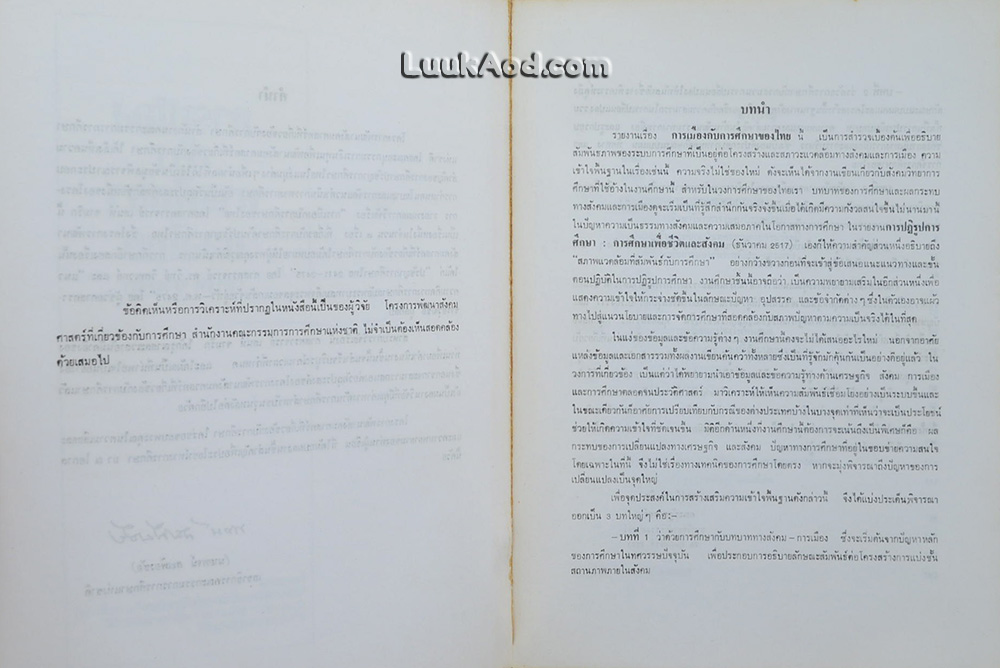 LuukAod.com
ข้อคิดเห็นหรือการวิเคราะห์ที่ปรากฏในหนังสือนี้เป็นของผู้วิจัย โครงการพัฒนาสังคม
ศาสตร์ที่เกี่ยวข้องกับการศึกษา สำนักงานคณะกรรมการการศึกษาแห่งชาติ ไม่จำเป็นต้องเห็นสอดคล้อง
ด้วยเสมอไป
บทนำ
รายงานเรื่อง การเมืองกับการศึกษาของไทย นี้ เป็นการสำรวจเบื้องต้นเพื่ออธิบาย
สัมพันธภาพของระบบการศึกษาที่เป็นอยู่ต่อโครงสร้างและสภาวะแวดล้อมทางสังคมและการเมือง ความ
เข้าใจพื้นฐานในเรื่องเช่นนี้ ความจริงไม่ใช่ของใหม่ ดังจะเห็นได้จากงานเขียนเกี่ยวกับสังคมวิทยาการ
ศึกษาที่ใช้อ้างในงานศึกษานี้ สำหรับในวงการศึกษาของไทยเรา บทบาทของการศึกษาและผลกระทบ
ทางสังคมและการเมืองดูจะเริ่มเป็นที่รู้สึกสำนึกกันจริงจังขึ้นเมื่อได้เกิดมีความกังวลสนใจขึ้นไม่นานมานี้
ในปัญหาความเป็นธรรมทางสังคมและความเสมอภาคในโอกาสทางการศึกษา ในรายงานการปฏิรูปการ
ศึกษา : การศึกษาเพื่อชีวิตและสังคม (ธันวาคม 2517) เองก็ให้ความสำคัญส่วนหนึ่งอธิบายถึง
"สภาพแวดล้อมที่สัมพันธ์กับการศึกษา" อย่างกว้างขวางก่อนที่จะเข้าสู่ข้อเสนอแนะแนวทางและขั้น
ตอนปฏิบัติในการปฏิรูปการศึกษา งานศึกษาชิ้นนี้อาจถือว่า เป็นความพยายามเสริมในอีกส่วนหนึ่งเพื่อ
แสดงความเข้าใจให้กระจ่างชัดขึ้นในลักษณะปัญหา อุปสรรค และข้อจำกัดต่าง ๆ ซึ่งในตัวเองอาจแผ้ว
ทางไปสู่แนวนโยบายและการจัดการศึกษาที่สอดคล้องกับสภาพปัญหาตามความเป็นจริงได้ในที่สุด
ในแง่ของข้อมูลและข้อความรู้ต่าง ๆ งานศึกษานี้คงจะไม่ได้เสนออะไรใหม่ นอกจากอาศัย
แหล่งข้อมูลและเอกสารรวมทั้งผลงานเขียนค้นคว้าทั้งหลายซึ่งเป็นที่รู้จักมักคุ้นกันเป็นอย่างดีอยู่แล้ว ใน
วงการที่เกี่ยวข้อง เป็นแต่ว่าได้พยายามนำเอาข้อมูลและข้อความรู้ทางด้านเศรษฐกิจ สังคม การเมือง
และการศึกษาตลอดจนประวัติศาสตร์ มาวิเคราะห์ให้เห็นความสัมพันธ์เชื่อมโยงอย่างเป็นระบบขึ้นและ
ในขณะเดียวกันก็อาศัยการเปรียบเทียบกับกรณีของต่างประเทศบ้างในบางจุดเท่าที่เห็นว่าจะเป็นประโยชน์
ช่วยให้เกิดความเข้าใจที่ชัดเจนขึ้น มีอีกด้านหนึ่งที่งานศึกษานี้ต้องการจะเน้นถึงเป็นพิเศษก็คือ ผล
กระทบของการเปลี่ยนแปลงทางเศรษฐกิจ และสังคม ปัญหาทางการศึกษาที่อยู่ในขอบข่ายความสนใจ
โดยเฉพาะในที่นี้ จึงไม่ใช่เรื่องทางเทคนิคของการศึกษาโดยตรง หากจะมุ่งพิจารณาถึงปัญหาของการ
เปลี่ยนแปลงเป็นจุดใหญ่
เพื่อจุดประสงค์ในการสร้างเสริมความเข้าใจพื้นฐานดังกล่าวนี้ จึงได้แบ่งประเด็นพิจารณา
ออกเป็น 3 บทใหญ่ ๆ คือ:-
-บทที่ 1 ว่าด้วยการศึกษากับบทบาททางสังคม - การเมือง ซึ่งจะเริ่มต้นจากปัญหาหลัก
ของการศึกษาในทศวรรษปัจจุบัน เพื่อประกอบการอธิบายลักษณะสัมพันธ์ต่อโครงสร้างการแบ่งชั้น
สถานภาพภายในสังคม